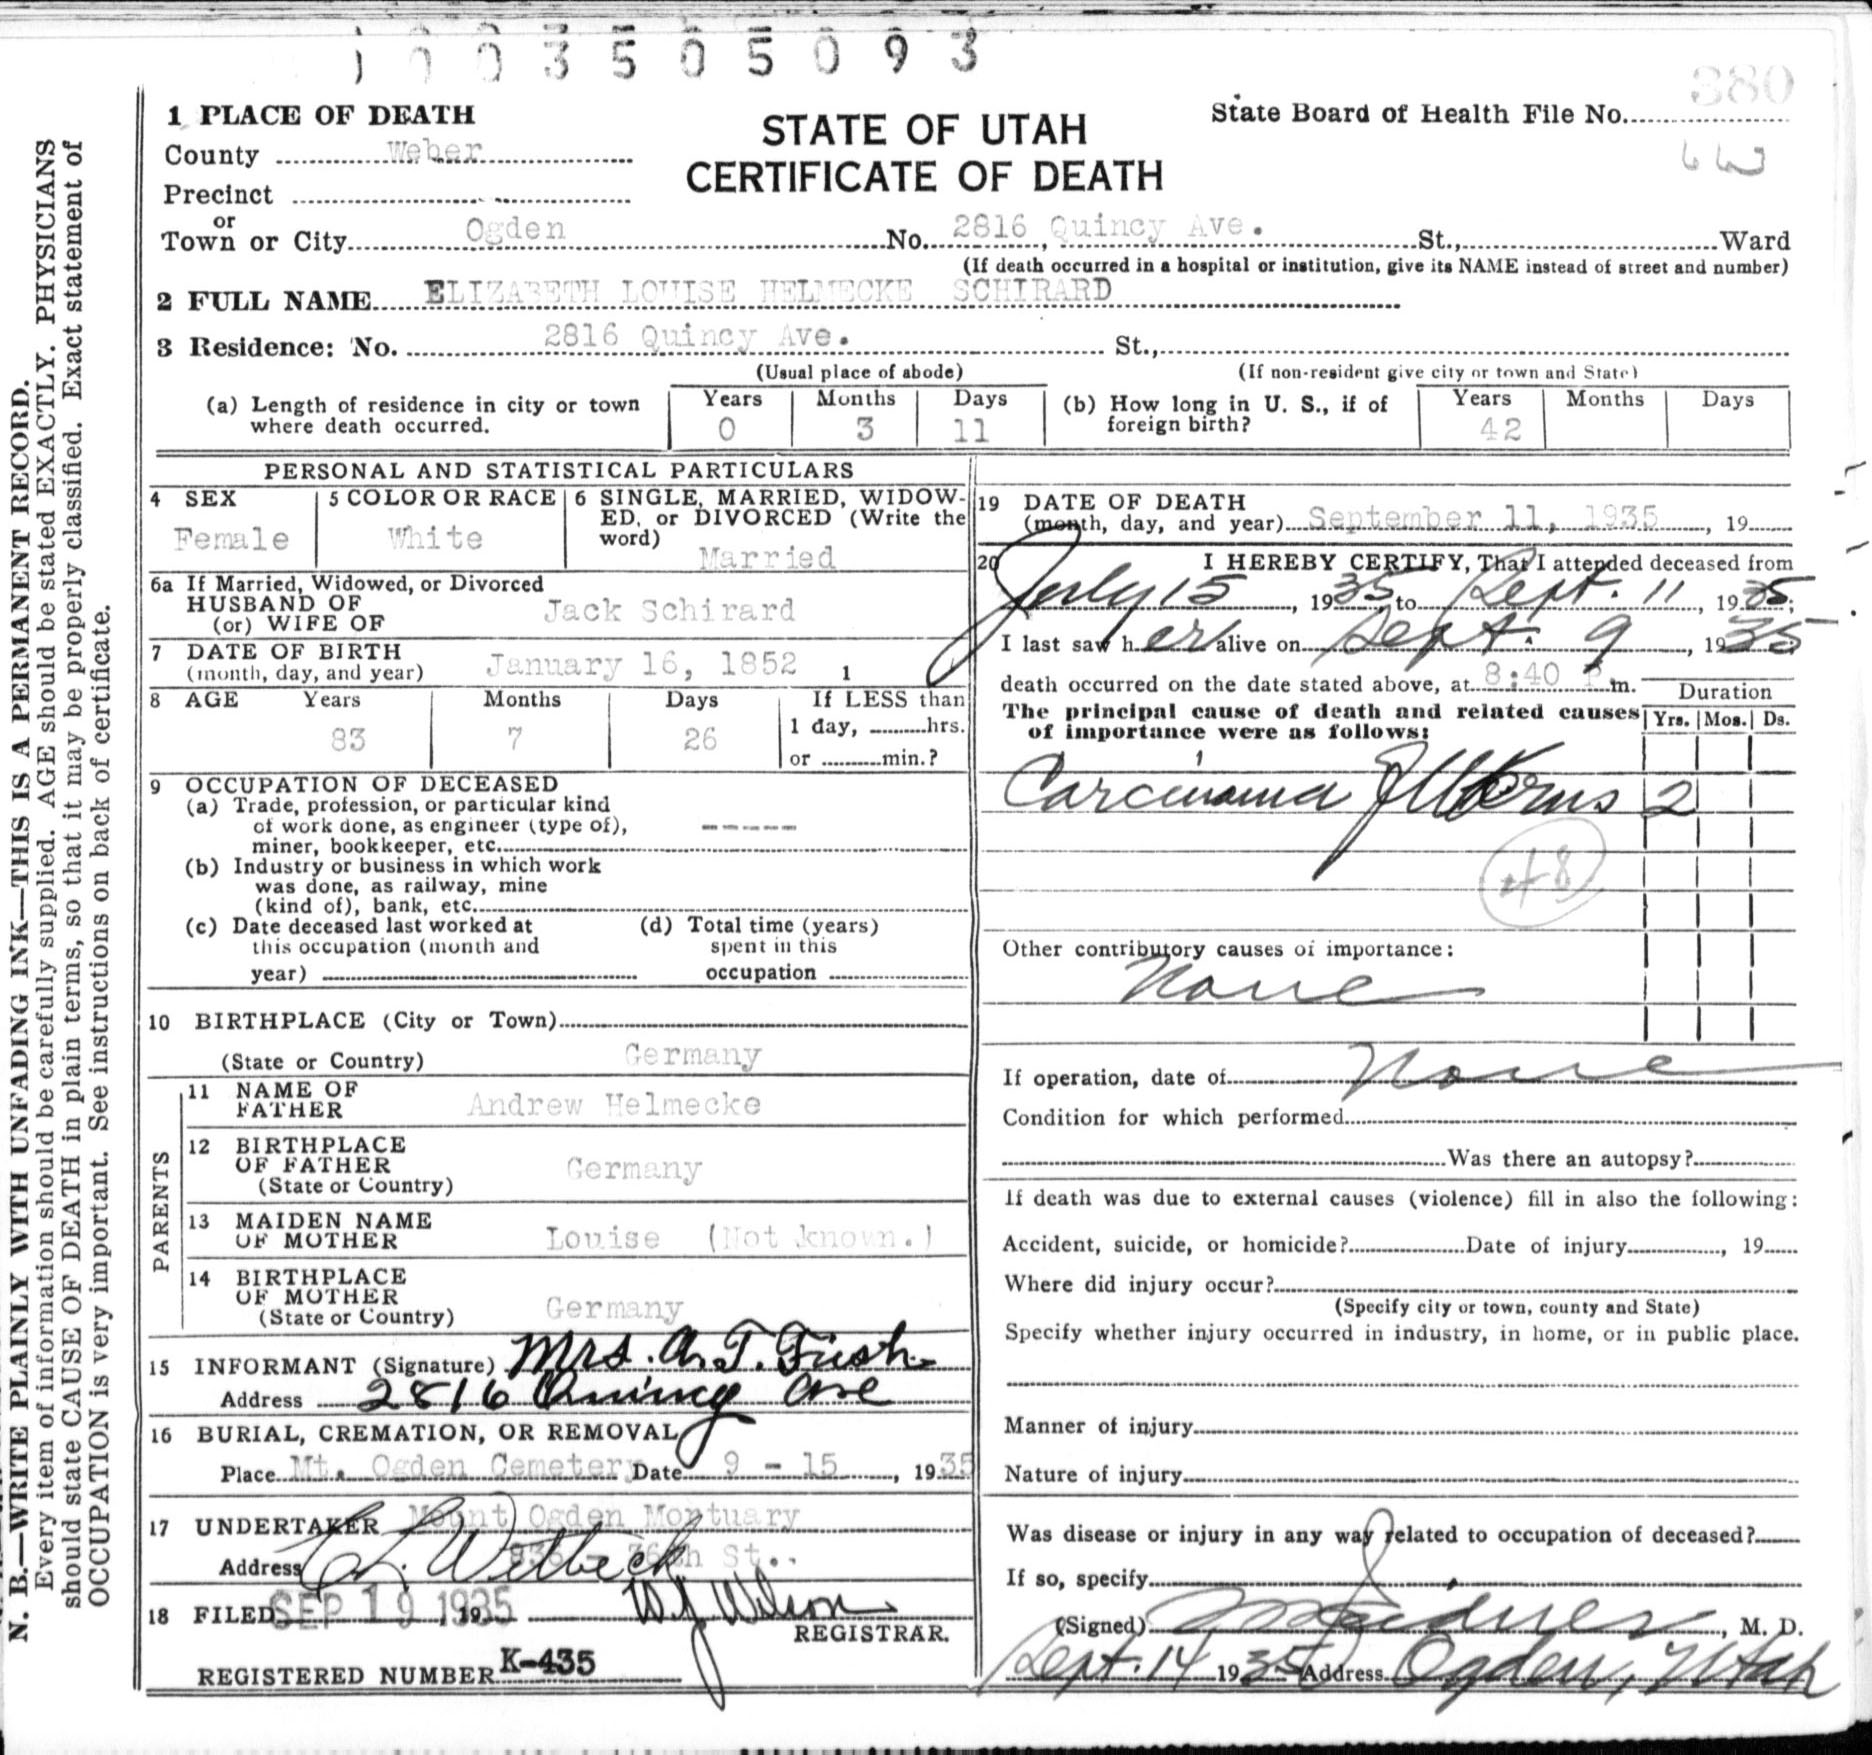 1003505093
380
1 PLACE OF DEATH
STATE OF UTAH
CERTIFICATE OF DEATH
State Board of Health File No.
County Weber
Precinct
or
Town or City Ogden No. 2816 Quincy Ave. St., Ward
(If death occurred in a hospital or institution, give its NAME instead of street and number)
2 FULL NAME ELIZABETH LOUISE HELMECKE SCHIRARD
3 Residence: No. 2816 Quincy Ave. St.,
(Usual place of abode) (If non-resident give city or town and State)
(a) Length of residence in city or town where death occurred. Years Months Days
0 3 11
(b) How long in U. S., if of foreign birth? Years Months Days
42
PERSONAL AND STATISTICAL PARTICULARS
4 SEX
Female
5 COLOR OR RACE
White
6 SINGLE, MARRIED, WIDOW-
ED, or DIVORCED (Write the
word)
Married
6a If Married, Widowed, or Divorced
HUSBAND OF
(or) WIFE OF Jack Schirard
7 DATE OF BIRTH
(month, day, and year) January 16, 1852 1
8 AGE Years Months Days If LESS than
83 7 26 1 day, hrs.
or min.?
9 OCCUPATION OF DECEASED
(a) Trade, profession, or particular kind
of work done, as engineer (type of),
miner, bookkeeper, etc. -----
(b) Industry or business in which work
was done, as railway, mine
(kind of), bank, etc.
(c) Date deceased last worked at
this occupation (month and
year)
(d) Total time (years)
spent in this
occupation
10 BIRTHPLACE (City or Town)
(State or Country) Germany
PARENTS
11 NAME OF
FATHER Andrew Helmecke
12 BIRTHPLACE
OF FATHER
(State or Country) Germany
13 MAIDEN NAME
OF MOTHER Louise (Not known.)
14 BIRTHPLACE
OF MOTHER
(State or Country) Germany
15 INFORMANT (Signature) Mrs. A. T.
Address 2816 Quincy Ave
16 BURIAL, CREMATION, OR REMOVAL
Place Mt. Ogden Cemetery Date 9 - 15, 1935
17 UNDERTAKER Mount Ogden Mortuary
Address 836 - 36th St..
18 FILED SEP 19 1935 19 W J Wilson
REGISTRAR.
REGISTERED NUMBER K-435
19 DATE OF DEATH
(month, day, and year) September 11, 1935, 19
20 I HEREBY CERTIFY, That I attended deceased from
July 15, 1935, to Sept. 11, 1935;
I last saw her alive on Sept. 9, 1935
death occurred on the date stated above, at 8:40 P m.
Duration
The principal cause of death and related causes
of importance were as follows:
Yrs. Mos. Ds.
Carcinoma 2
48
Other contributory causes of importance:
None
If operation, date of None
Condition for which performed
Was there an autopsy?
If death was due to external causes (violence) fill in also the following:
Accident, suicide, or homicide? Date of injury, 19
Where did injury occur?
(Specify city or town, county and State)
Specify whether injury occurred in industry, in home, or in public place.
Manner of injury
Nature of injury
Was disease or injury in any way related to occupation of deceased?
If so, specify
(Signed), M. D.
Sept. 14 1935 Address Ogden, Utah
N. B.—WRITE PLAINLY WITH UNFADING INK—THIS IS A PERMANENT RECORD.
Every item of information should be carefully supplied. AGE should be stated EXACTLY. PHYSICIANS
should state CAUSE OF DEATH in plain terms, so that it may be properly classified. Exact statement of
OCCUPATION is very important. See instructions on back of certificate.